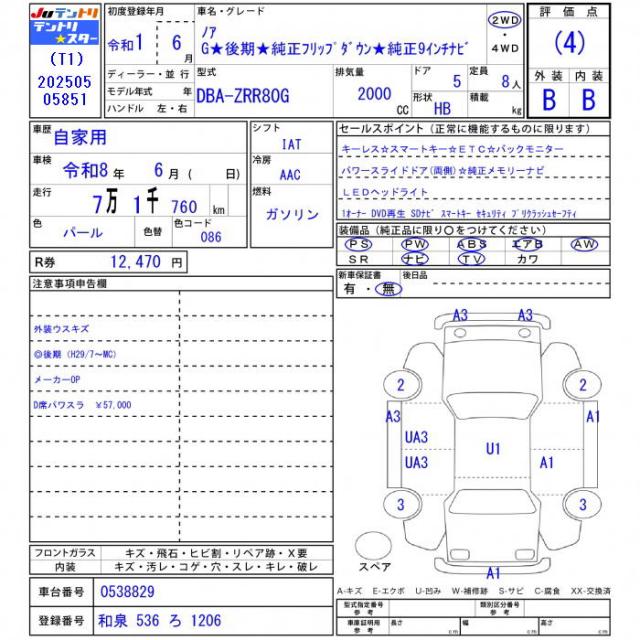 JUテントリ
テントリ
★スター
(T1)
202505
05851
初度登録年月
令和1 6 月
ディーラー・並 行
モデル年式 年
ハンドル 左・右
車名・グレード
ノア
G★後期★純正フリップダウン★純正9インチナビ
2WD
・
4WD
評 価 点
(4)
外 装 内 装
B B
型式
DBA-ZRR80G
排気量
2000 CC
ドア 5
形状 HB
定員 8人
積載 kg
車歴
自家用
車検
令和8 年 6 月 ( 日)
走行
7万 1千 760 km
色
パール
色替
色コード
086
シフト
IAT
冷房
AAC
燃料
ガソリン
セールスポイント(正常に機能するものに限ります)
キーレス☆スマートキー☆ETC☆バックモニター
パワースライドドア(両側)☆純正メモリーナビ
LEDヘッドライト
1オーナー DVD再生 SDナビ スマートキー セキュリティ プリクラッシュセーフティ
装備品(純正品に限り○をつけてください)
PS PW ABS エアB AW
SR ナビ TV カワ
R券 12,470 円
新車保証書
有・無
後日品
注意事項申告欄
外装ウスキズ
◎後期 (H29/7～MC)
メーカーOP
D席パワスラ ¥57,000
A3 A3
2 2
A3 A1
UA3
UA3 U1 A1
3 3
スペア
A1
フロントガラス キズ・飛石・ヒビ割・リペア跡・X要
内装 キズ・汚レ・コゲ・穴・スレ・キレ・破レ
A-キズ E-エクボ U-凹み W-補修跡 S-サビ C-腐食 XX-交換済
車台番号 0538829
登録番号 和泉 536 ろ 1206
型式指定番号 類別区分番号
車庫証明用
参考 長さ cm 幅 cm 高さ cm